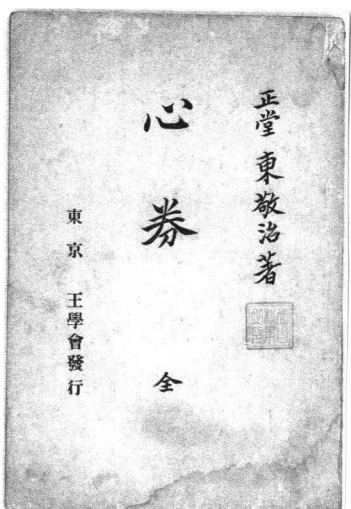 正堂 東敬治著
心券 全
東京 王學會發行